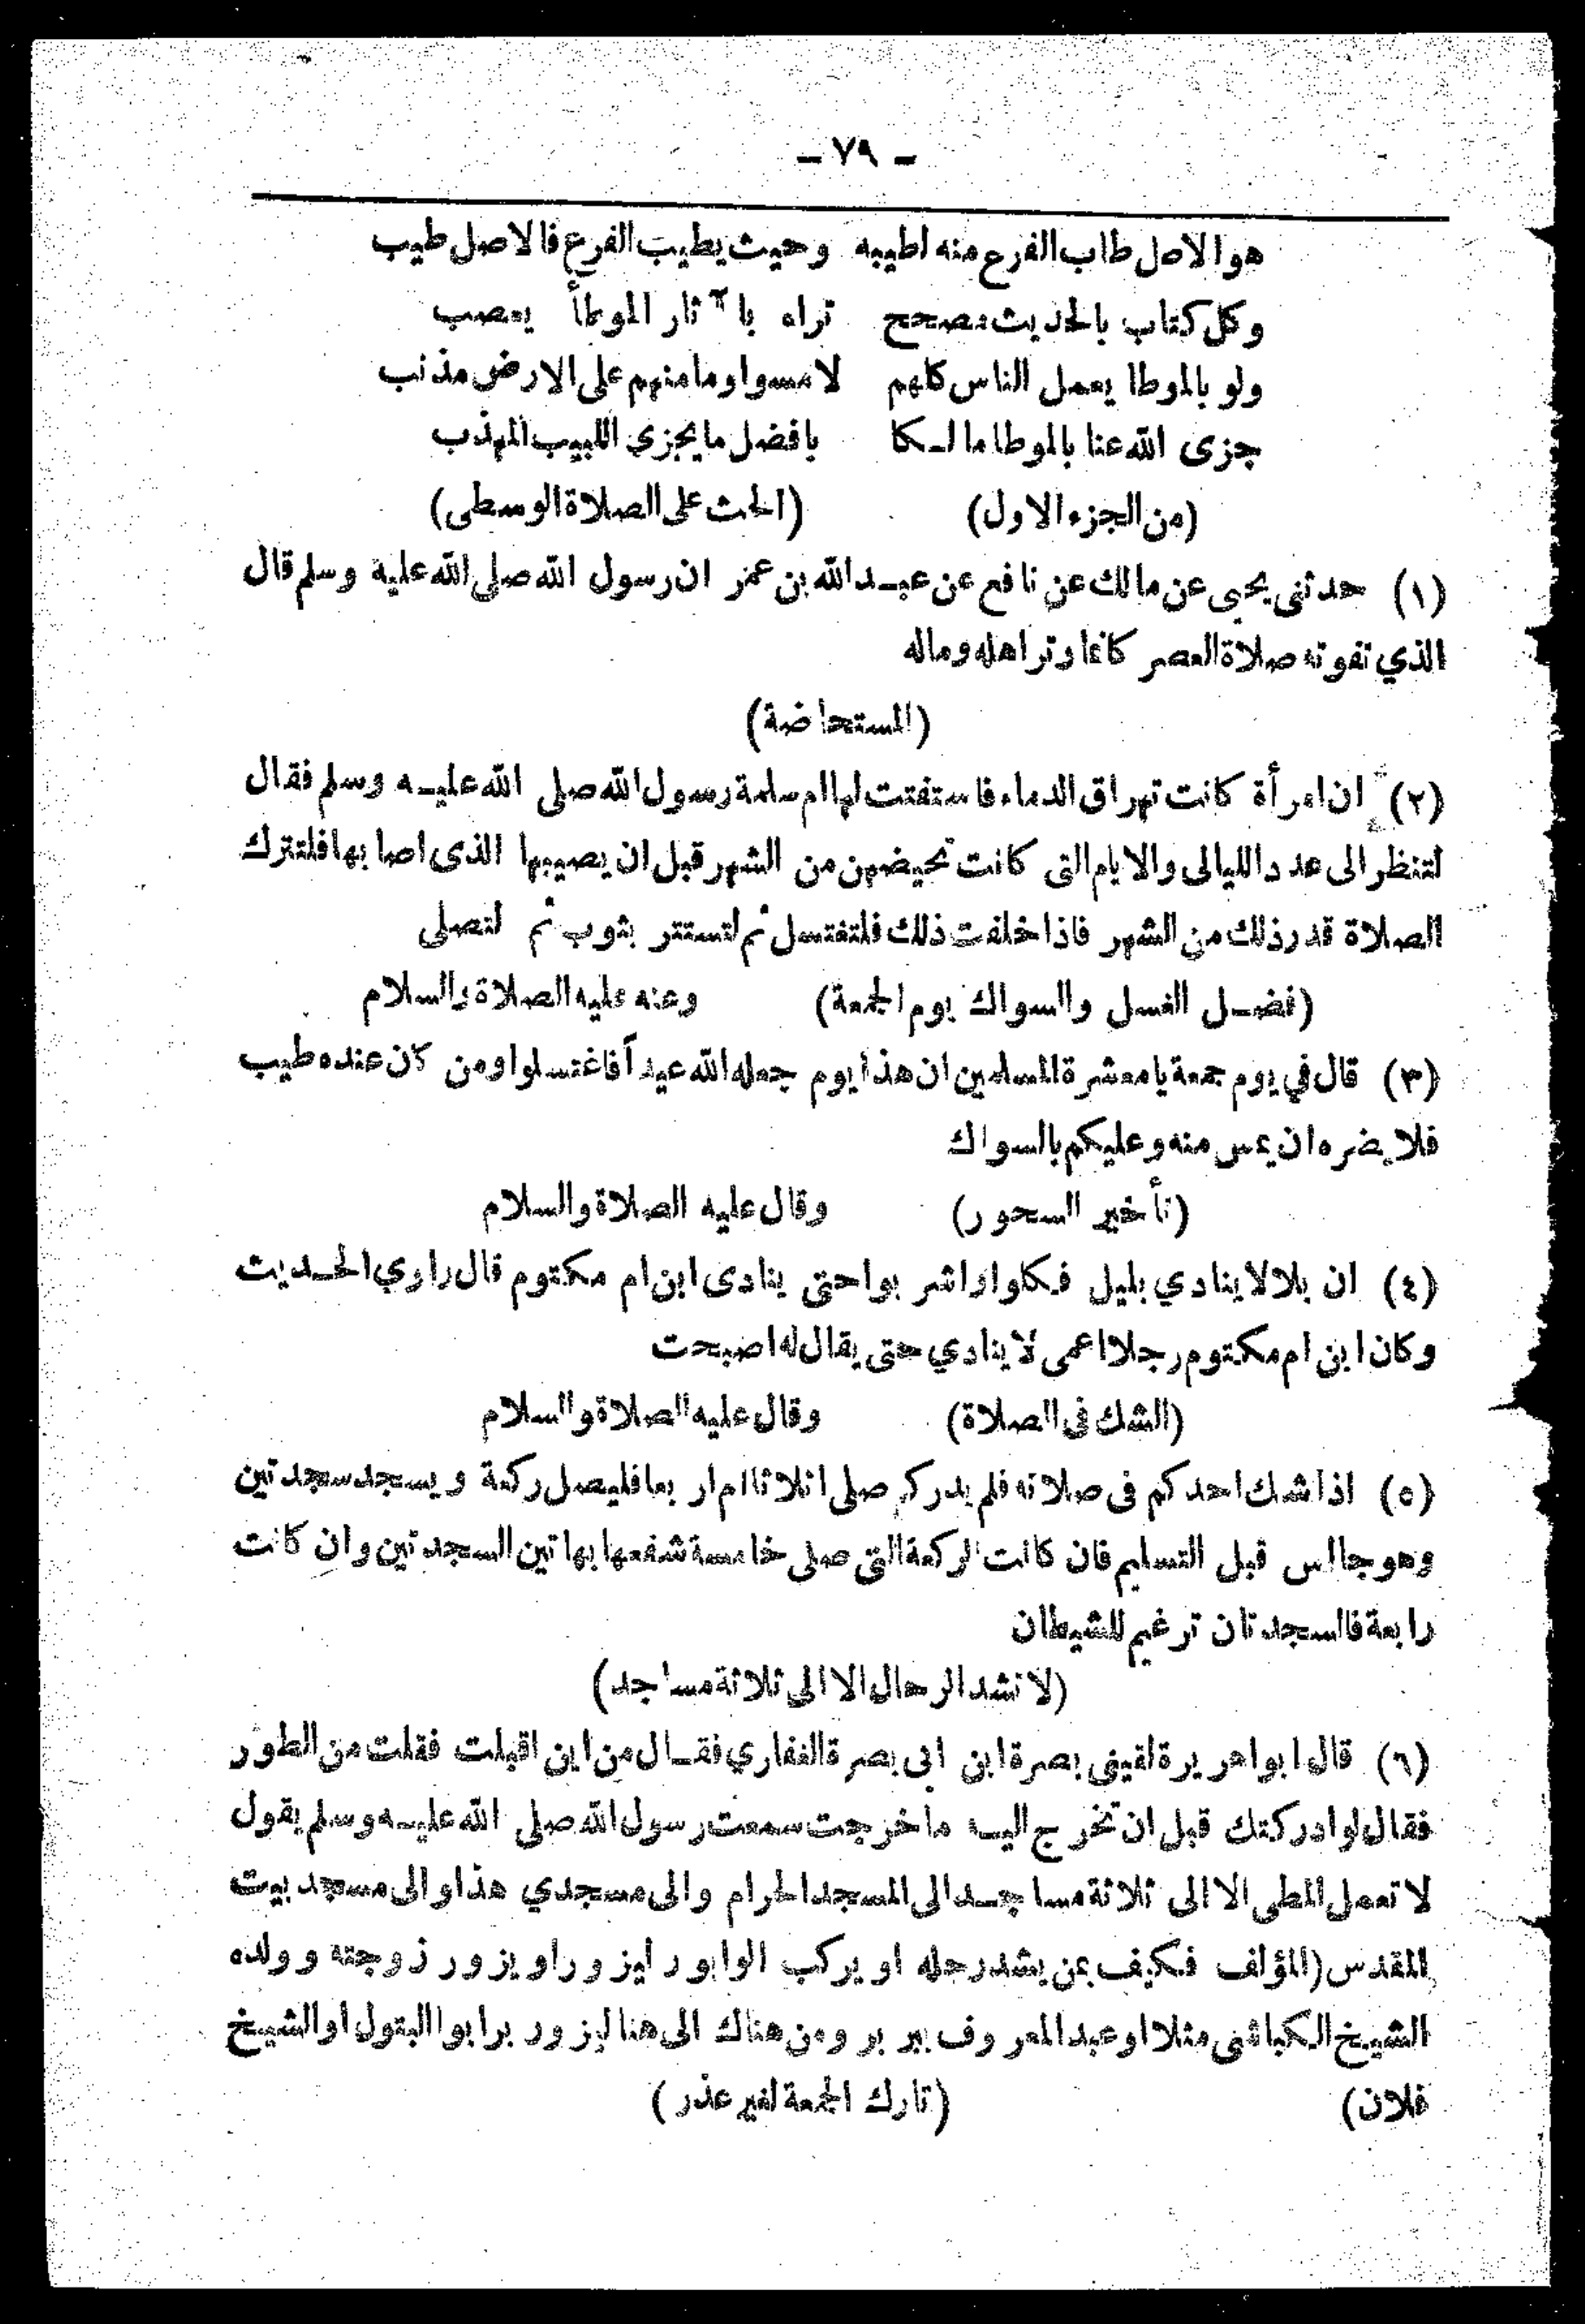 - ٧٩ -
هو الاصل طاب الفرع منه لطيبه وحيث يطيب الفرع فالاصل طيب
وكل كتاب بالحديث مصحح تراه بآثار الموطأ يعصب
ولو بالموطا يعمل الناس كلهم لامسوا وما منهم على الارض مذنب
جزى الله عنا بالموطا مالكا بافضل ما يجزي اللبيب المهذب
(من الجزء الاول) (الحث على الصلاة الوسطى)
(١) حدثنى يحيى عن مالك عن نافع عن عبد الله بن عمر ان رسول الله صلى الله عليه وسلم قال
الذي تفوته صلاة العصر كانما وتر اهله وماله
(المستحاضة)
(٢) ان امرأة كانت تهراق الدماء فاستفتت لها ام سلمة رسول الله صلى الله عليه وسلم فقال
لتنظر الى عدد الليالى والايام التى كانت تحيضهن من الشهر قبل ان يصيبها الذى اصابها فلتترك
الصلاة قدر ذلك من الشهر فاذا خلفت ذلك فلتغتسل ثم لتستتر بثوب ثم لتصلى
(فضل الغسل والسواك يوم الجمعة) وعنه عليه الصلاة والسلام
(٣) قال في يوم جمعة يا معشرة المسلمين ان هذا يوم جعله الله عيداً فاغتسلوا ومن كان عنده طيب
فلا يضره ان يمس منه وعليكم بالسواك
(تأخير السحور) وقال عليه الصلاة والسلام
(٤) ان بلالا ينادي بليل فكلوا واشربوا حتى ينادى ابن ام مكتوم قال راوي الحديث
وكان ابن ام مكتوم رجلا اعمى لا ينادي حتى يقال له اصبحت
(الشك فى الصلاة) وقال عليه الصلاة والسلام
(٥) اذا شك احدكم فى صلاته فلم يدر كم صلى اثلاثا ام اربعا فليصل ركعة ويسجد سجدتين
وهو جالس قبل التسليم فان كانت الركعة التى صلى خامسة شفعها بهاتين السجدتين وان كانت
رابعة فالسجدتان ترغيم للشيطان
(لا تشد الرحال الا الى ثلاثة مساجد)
(٦) قال ابو اهريرة لقينى بصرة ابن ابى بصرة الغفاري فقال من اين اقبلت فقلت من الطور
فقال لو ادركتك قبل ان تخرج اليه ما خرجت سمعت رسول الله صلى الله عليه وسلم يقول
لا تعمل المطى الا الى ثلاثة مساجد الى المسجد الحرام والى مسجدي هذا والى مسجد بيت
المقدس (المؤلف فكيف بمن يشد رحله او يركب الوابور ليزور او يزور زوجته وولده
الشيخ الكباشى مثلا او عبد المعروف ببربر ومن هناك الى هنا ليزور برابوا البتول او الشيخ
فلان) (تارك الجمعة لغير عذر)